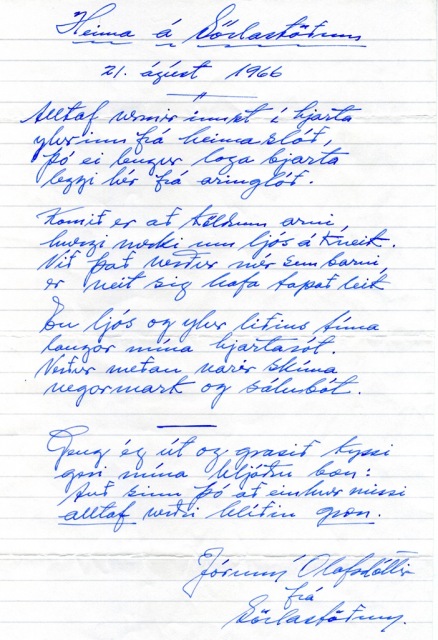 Heima á Sörlastöðum
21. ágúst 1966
Alltaf vermir innst í hjarta
ylurinn frá heimaslóð,
þó ei lengur loga bjarta
leggi hér frá aringlóð.
Komið er að köldum arni,
hvergi um ljós á kveik.
Við það verður mér sem barni,
er veit sig hafa tapað leik
En ljós og ylur liðins tíma
mína hjartasót.
Verður meðan varir skíma
vegarmark og sálubót.
Geng ég út og grasið kyssi
geri mína hljóðu bæn:
þó að einhver missi
alltaf verði hlíðin græn.
Jórunn Ólafsdóttir
frá
Sörlastöðum.